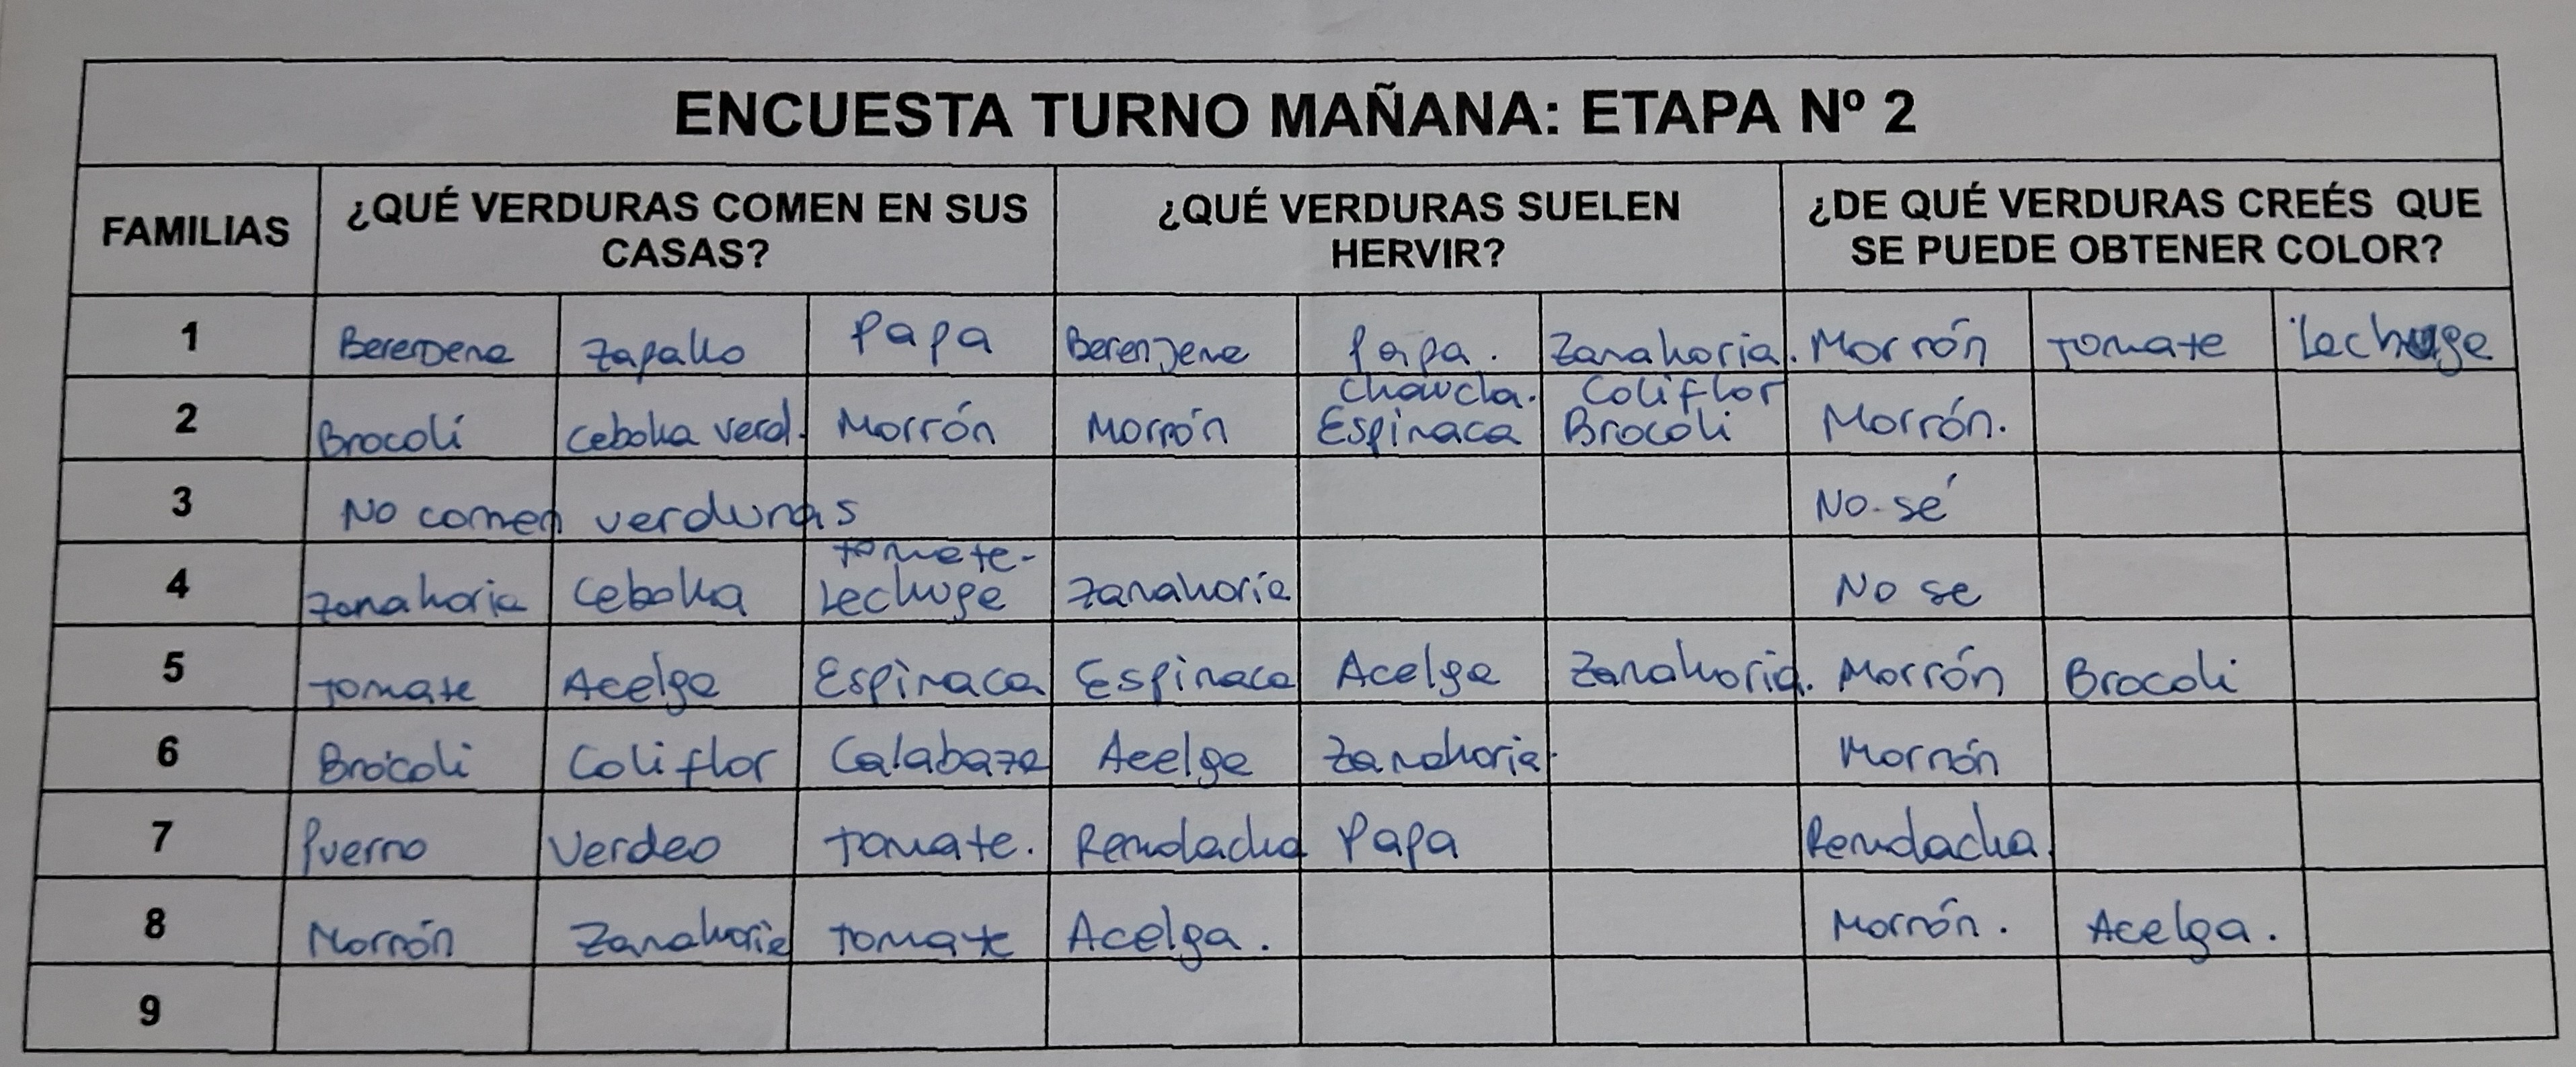 ENCUESTA TURNO MAÑANA: ETAPA Nº 2
FAMILIAS ¿QUÉ VERDURAS COMEN EN SUS CASAS? ¿QUÉ VERDURAS SUELEN HERVIR? ¿DE QUÉ VERDURAS CREÉS QUE SE PUEDE OBTENER COLOR?
1 Berenjena Zapallo Papa Berenjena Papa. Zanahoria. Morrón Tomate Lechuga
2 Brocolí Cebolla verd. Morrón Morrón Chaucha. Espinaca Coliflor Brocoli Morrón.
3 No comen verduras No sé
4 Zanahoria Cebolla Tomate- Lechuga Zanahoria No se
5 Tomate Acelga Espinaca Espinaca Acelga Zanahoria. Morrón Brocoli
6 Brócoli Coliflor Calabaza Acelga Zanahoria. Morrón
7 Puerro Verdeo Tomate. Remolacha Papa Remolacha.
8 Morrón Zanahoria Tomate Acelga. Morrón. Acelga.
9